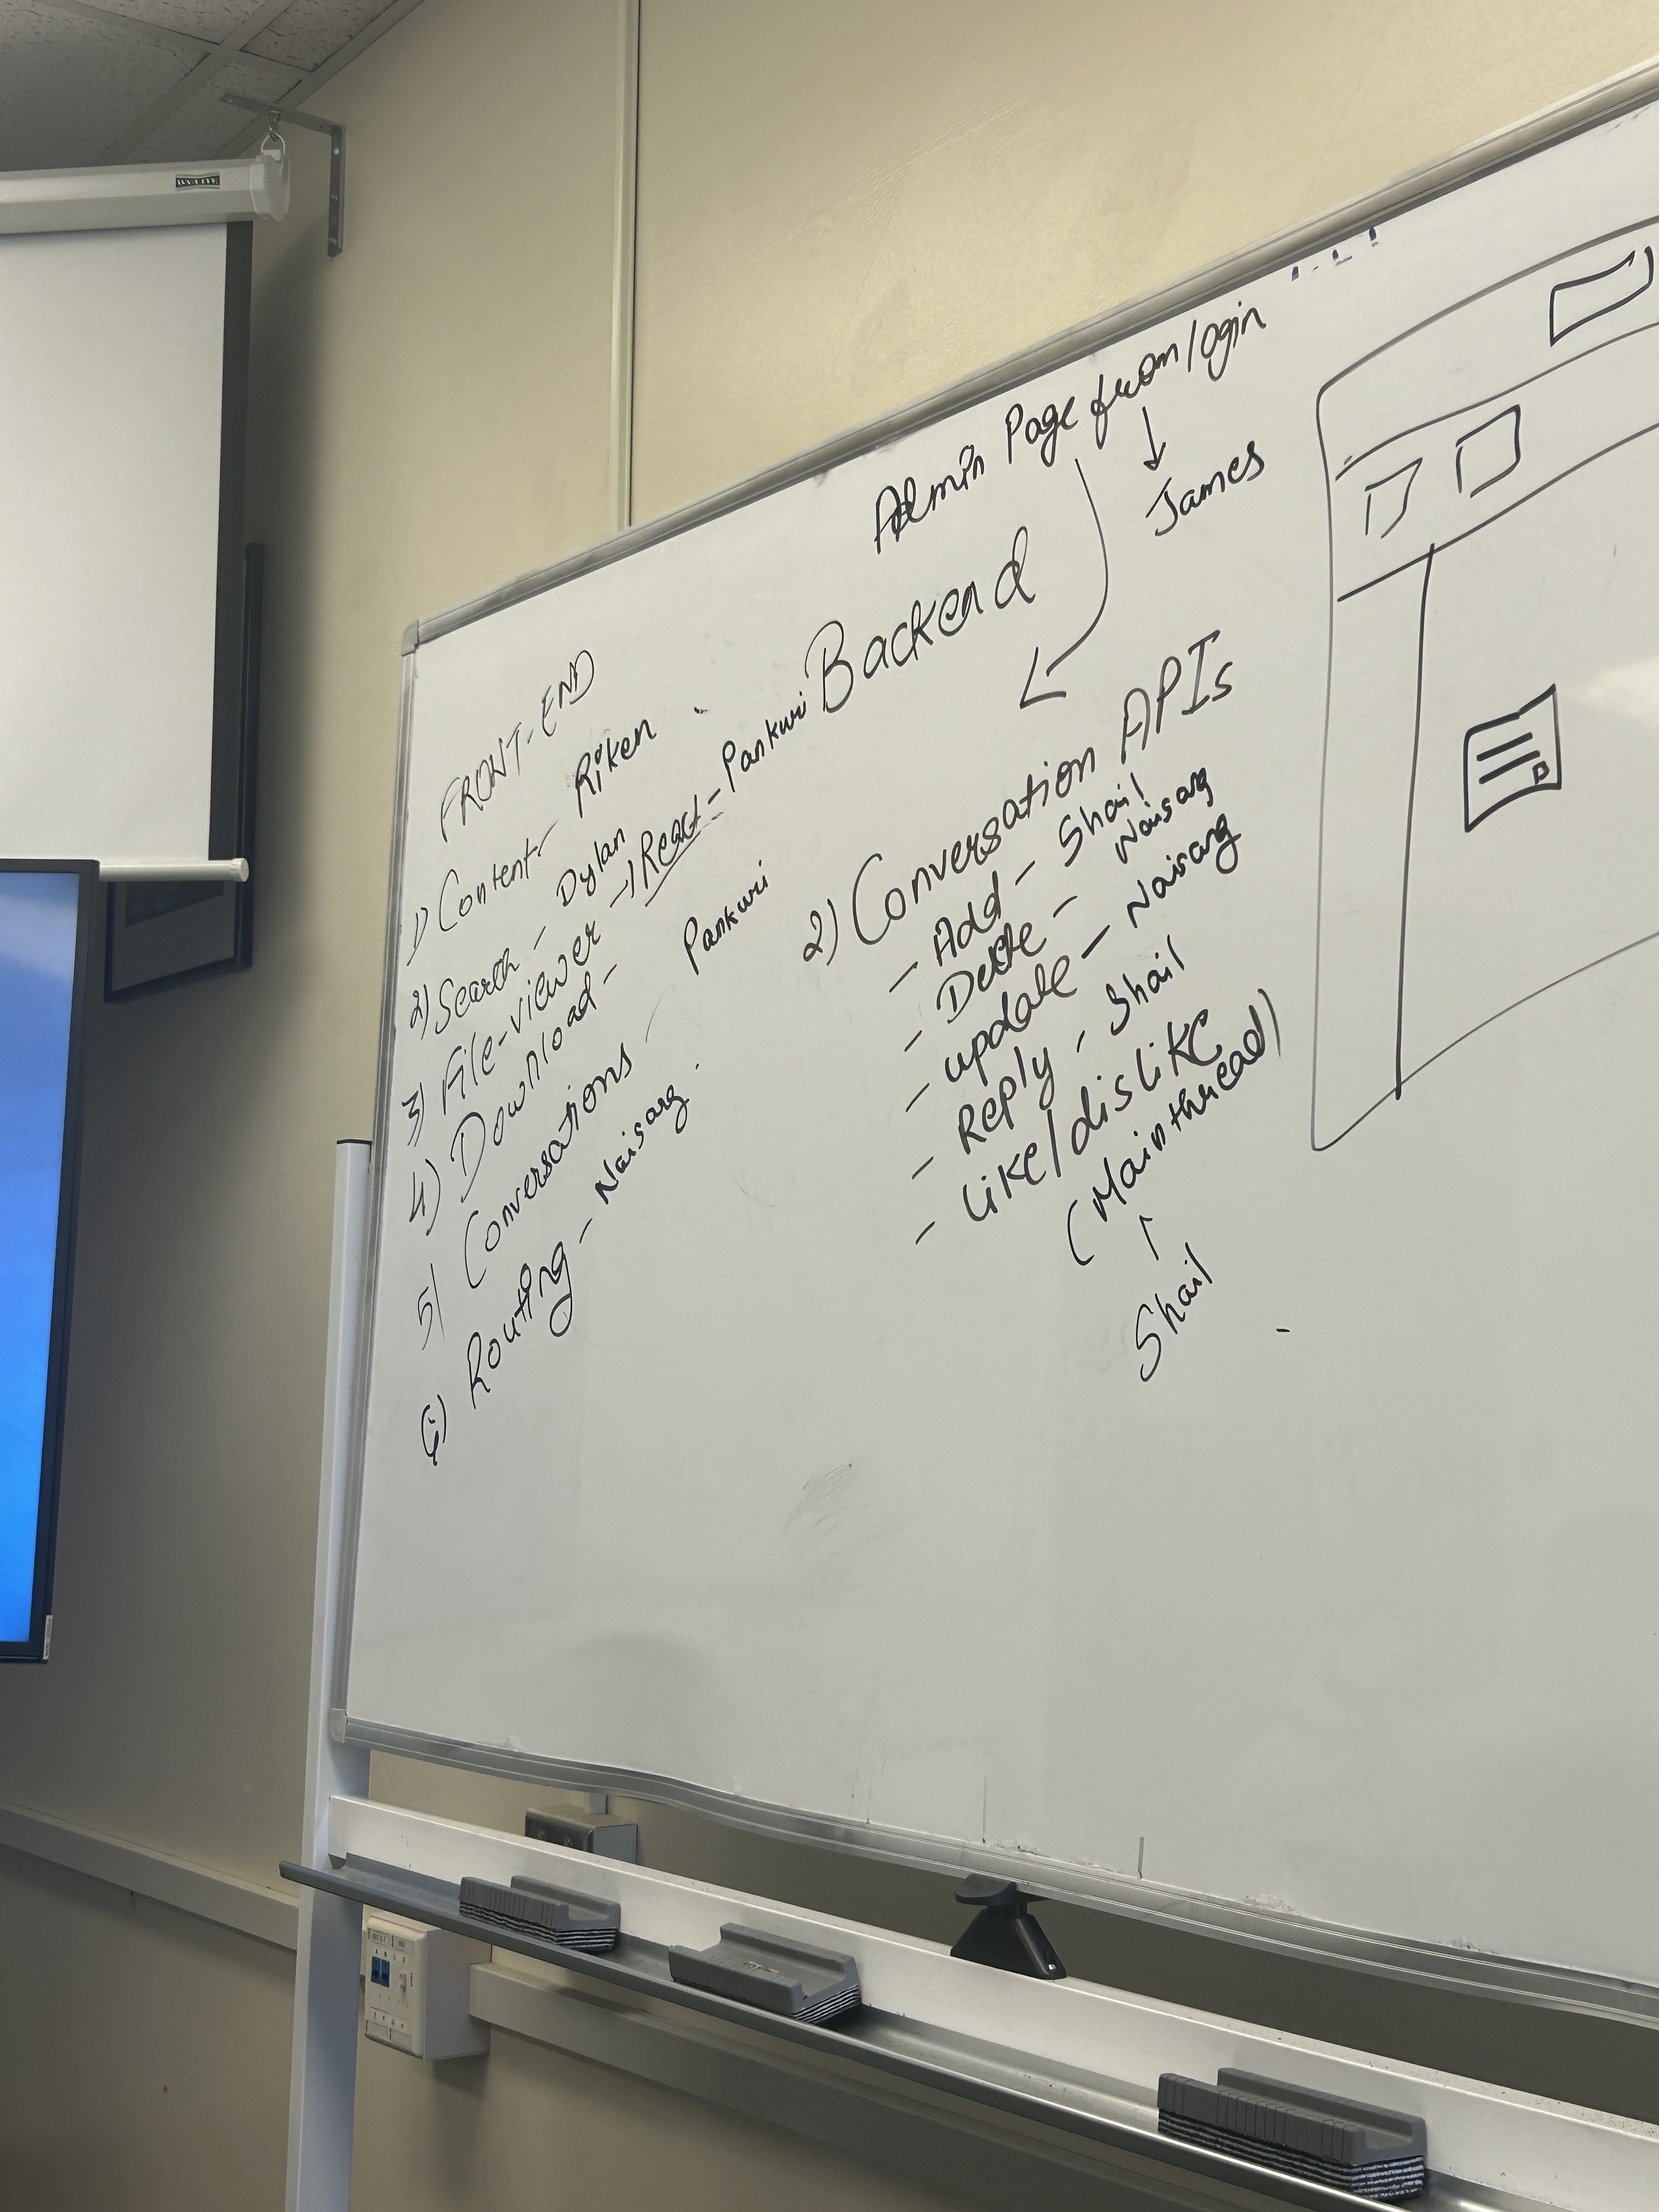 Admin Page from login
James
FRONT-END
1) Content - Riken
2) Search - Dylan
3) File-viewer → React - Pankuri
4) Download -
5) Conversations - Pankuri
6) Routing - Naisarg
Backend
2) Conversation APIs
- Add - Shail
- Delete - Naisarg
- update - Naisarg
- Reply - Shail
- Like/dislike
(Main thread)
↑
Shail